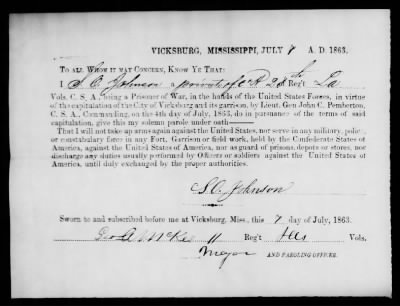 VICKSBURG, MISSISSIPPI, JULY 7 A. D. 1863.
TO ALL WHOM IT MAY CONCERN, KNOW YE THAT:
I S. C. Johnson a private of Co Reg't La
Vols. C. S. A., being a Prisoner of War, in the hands of the United States Forces, in virtue
of the capitulation of the City of Vicksburg and its garrison, by Lieut. Gen John C. Pemberton,
C. S. A., Commanding, on the 4th day of July, 1863, do in pursuance of the terms of said
capitulation, give this my solemn parole under oath——
That I will not take up arms again against the United States, nor serve in any military, police,
or constabulary force in any Fort, Garrison or field work, held by the Confederate States of
America, against the United States of America, nor as guard of prisons, depots or stores, nor
discharge any duties usually performed by Officers or soldiers against the United States of
America, until duly exchanged by the proper authorities.
S. C. Johnson
Sworn to and subscribed before me at Vicksburg, Miss., this 7 day of July, 1863.
Geo A McKee 11 Reg't Ills Vols.
Major AND PAROLING OFFICER.